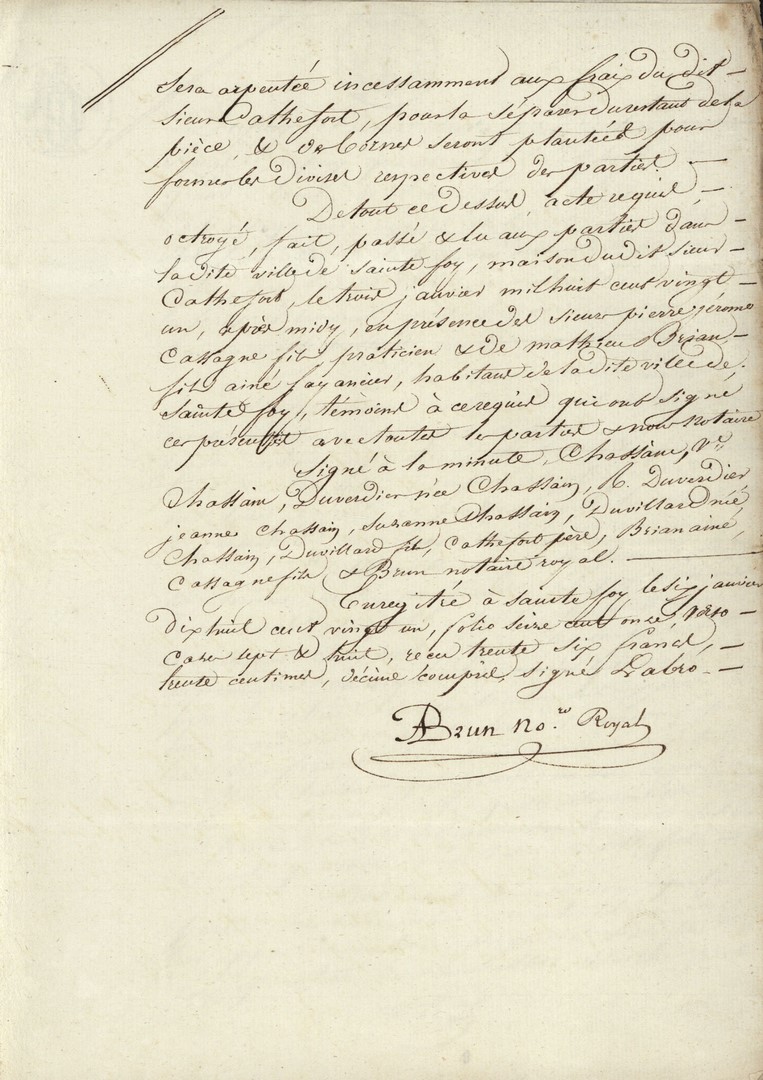 Sera arpentée incessamment aux fraix du dit
sieur Cathefort, pour la séparer du restant de la
pièce, & des bornes seront plantées pour
former les divises respectives des parties.
De tout ce dessus, acte requis,
octroyé, fait, passé & lu aux parties dans
la dite ville de Sainte foy, maison du dit sieur
Cathefort, le trois janvier mil huit cent vingt
un, après midy, en présence des sieurs pierre jérome
Cassagne fils praticien & de mathieu Brian
fils ainé fayancier, habitans de la dite ville de
Sainte foy, témoins à ce requis qui ont signé
ces présentes avec toutes les parties & nous Notaire
Signé à la minute, Chassain, Ve.
Chassain, Duverdier née Chassain, R. Duverdier,
jeanne Chassain, Suzanne Chassain, Duvillard née
Chassain, Duvillard fils, Cathefort père, Brian ainé,
Cassagne fils & Brun notaire royal.
Enregitré à Sainte foy le six janvier
dix huit cent vingt un, folio seize cent onze, verso
cases sept & huit, reçu trente six francs,
trente centimes, décime compris, signé Labro.
ABrun no.re Royal